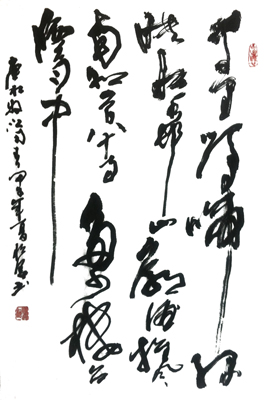 千里莺啼绿
映红水村山郭酒旗风
南朝四百八十寺多少楼台
烟雨中
唐杜牧诗